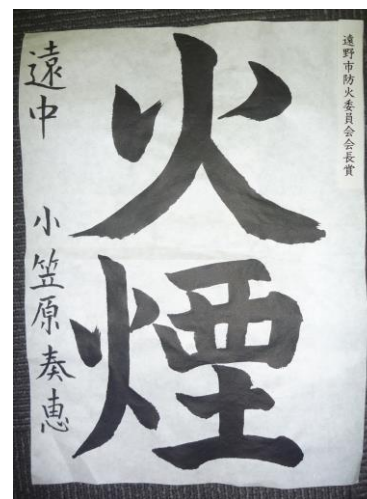 遠野市防火委員会会長賞
火煙
遠中 小笠原奏恵